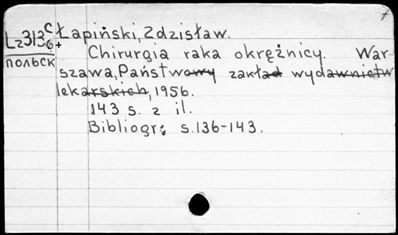 Lz313 c6+
ПОЛЬСК
Łapiński, Zdzisław.
Chirurgia raka okrężnicy. War-
szawa, Państwowy zakład wydawnictw
lekarskich, 1956.
143 s. z il.
Bibliogr: s.136-143.